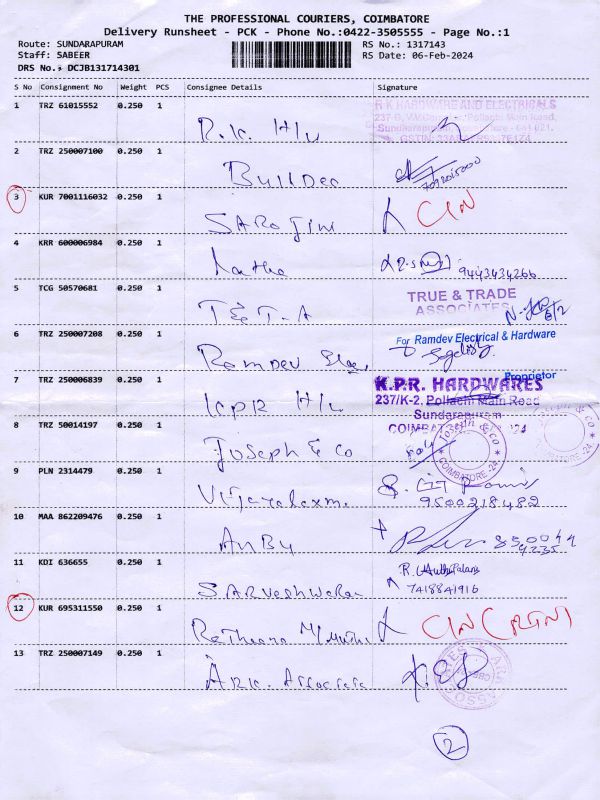 THE PROFESSIONAL COURIERS, COIMBATORE
Delivery Runsheet - PCK - Phone No.:0422-3505555 - Page No.:1
Route: SUNDARAPURAM
Staff: SABEER
DRS No.: DCJB131714301
RS No.: 1317143
RS Date: 06-Feb-2024
S No Consignment No Weight PCS Consignee Details Signature
1 TRZ 61015552 0.250 1 R.K. H/W
R K HARDWARE AND ELECTRICALS
2 TRZ 250007100 0.250 1 Builder
7092015000
3 KUR 7001116032 0.250 1 SAROJINI CIN
4 KRR 600006984 0.250 1 Latha
9443434266
5 TCG 50570681 0.250 1 T & T-A
TRUE & TRADE
ASSOCIATES
6/2
6 TRZ 250007208 0.250 1 Ramdev
For Ramdev Electrical & Hardware
Proprietor
7 TRZ 250006839 0.250 1 KPR H/W
K.P.R. HARDWARES
237/K-2, Pollachi Main Road
Sundarapuram
8 TRZ 50014197 0.250 1 Joseph & Co
Joseph & Co
COIMBATORE-24
9 PLN 2314479 0.250 1
9500218482
10 MAA 862209476 0.250 1 ANBU
11 KDI 636655 0.250 1 Sarveshwaran
7418841916
12 KUR 695311550 0.250 1 CIN (RTN)
13 TRZ 250007149 0.250 1 Ark. Associate
2